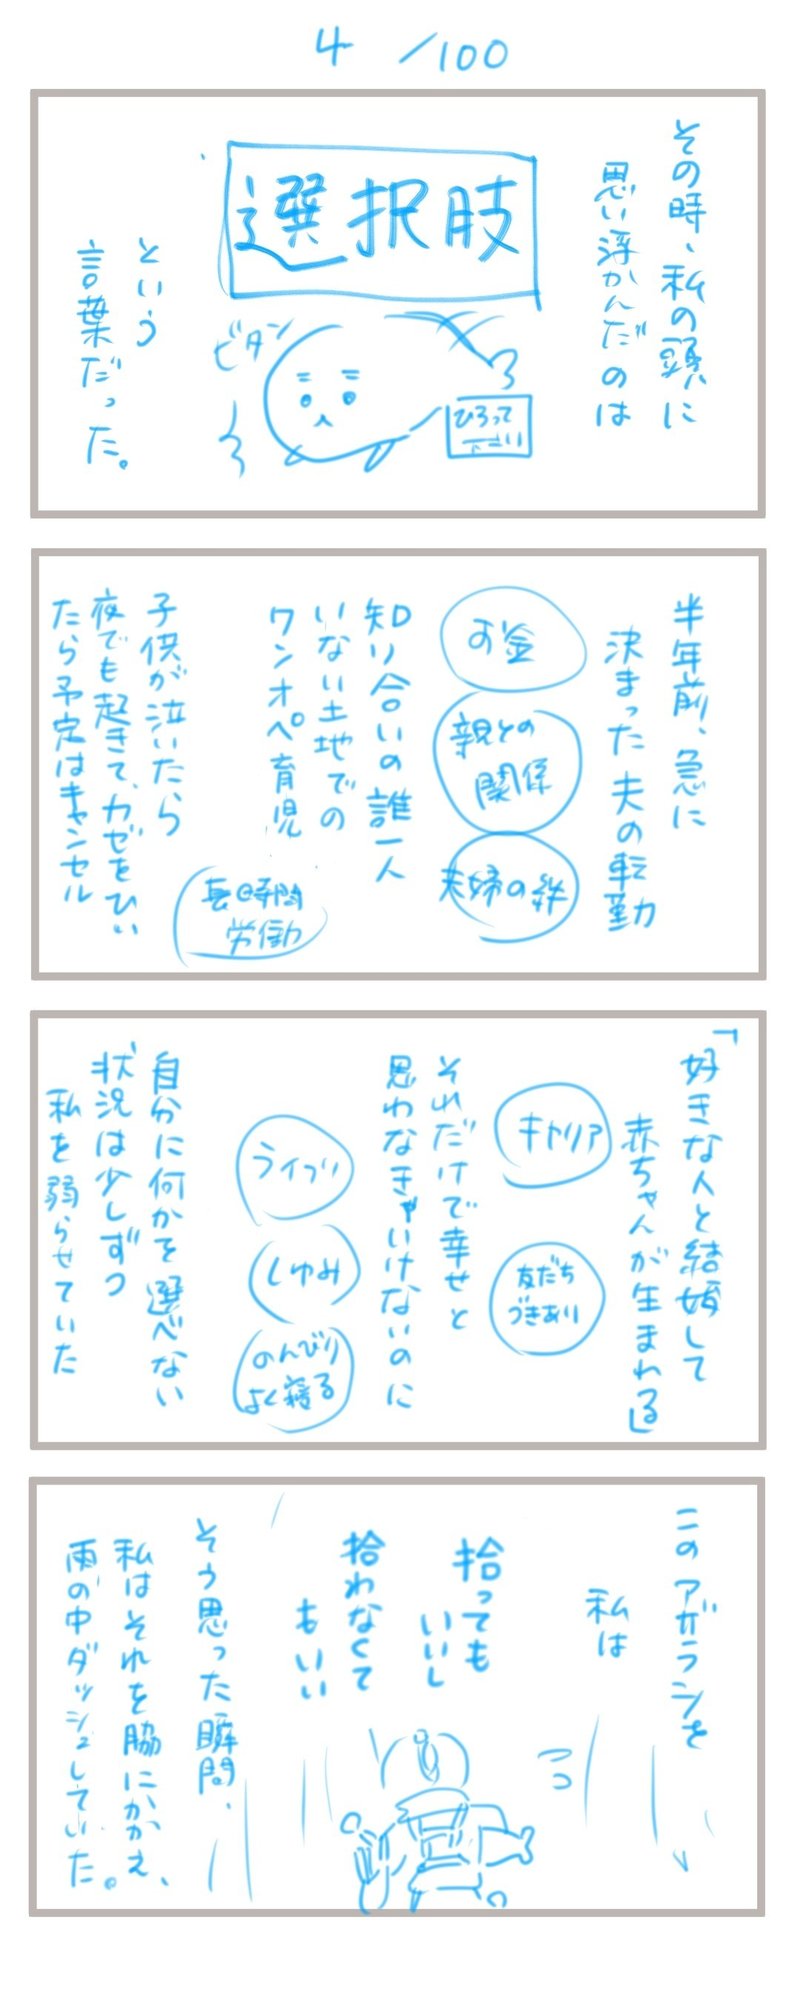 4 /100
その時、私の頭に
思い浮かんだのは
選択肢
ビタン
ひろって
下さい
という
言葉だった。
半年前、急に
決まった夫の転勤
お金
親との
関係
夫婦の絆
知り合いの誰一人
いない土地での
ワンオペ育児
長時間
労働
子供が泣いたら
夜でも起きて、カゼをひい
たら予定はキャンセル
「好きな人と結婚して
赤ちゃんが生まれる」
キャリア
友だち
づきあり
それだけで幸せと
思わなきゃいけないのに
ライブリ
しゅみ
のんびり
よく寝る
自分に何かを選べない
状況は少しずつ
私を弱らせていた
このアザラシを
私は
拾っても
いいし
拾わなくて
もいい
そう思った瞬間、
私はそれを脇にかかえ、
雨の中ダッシュしていた。